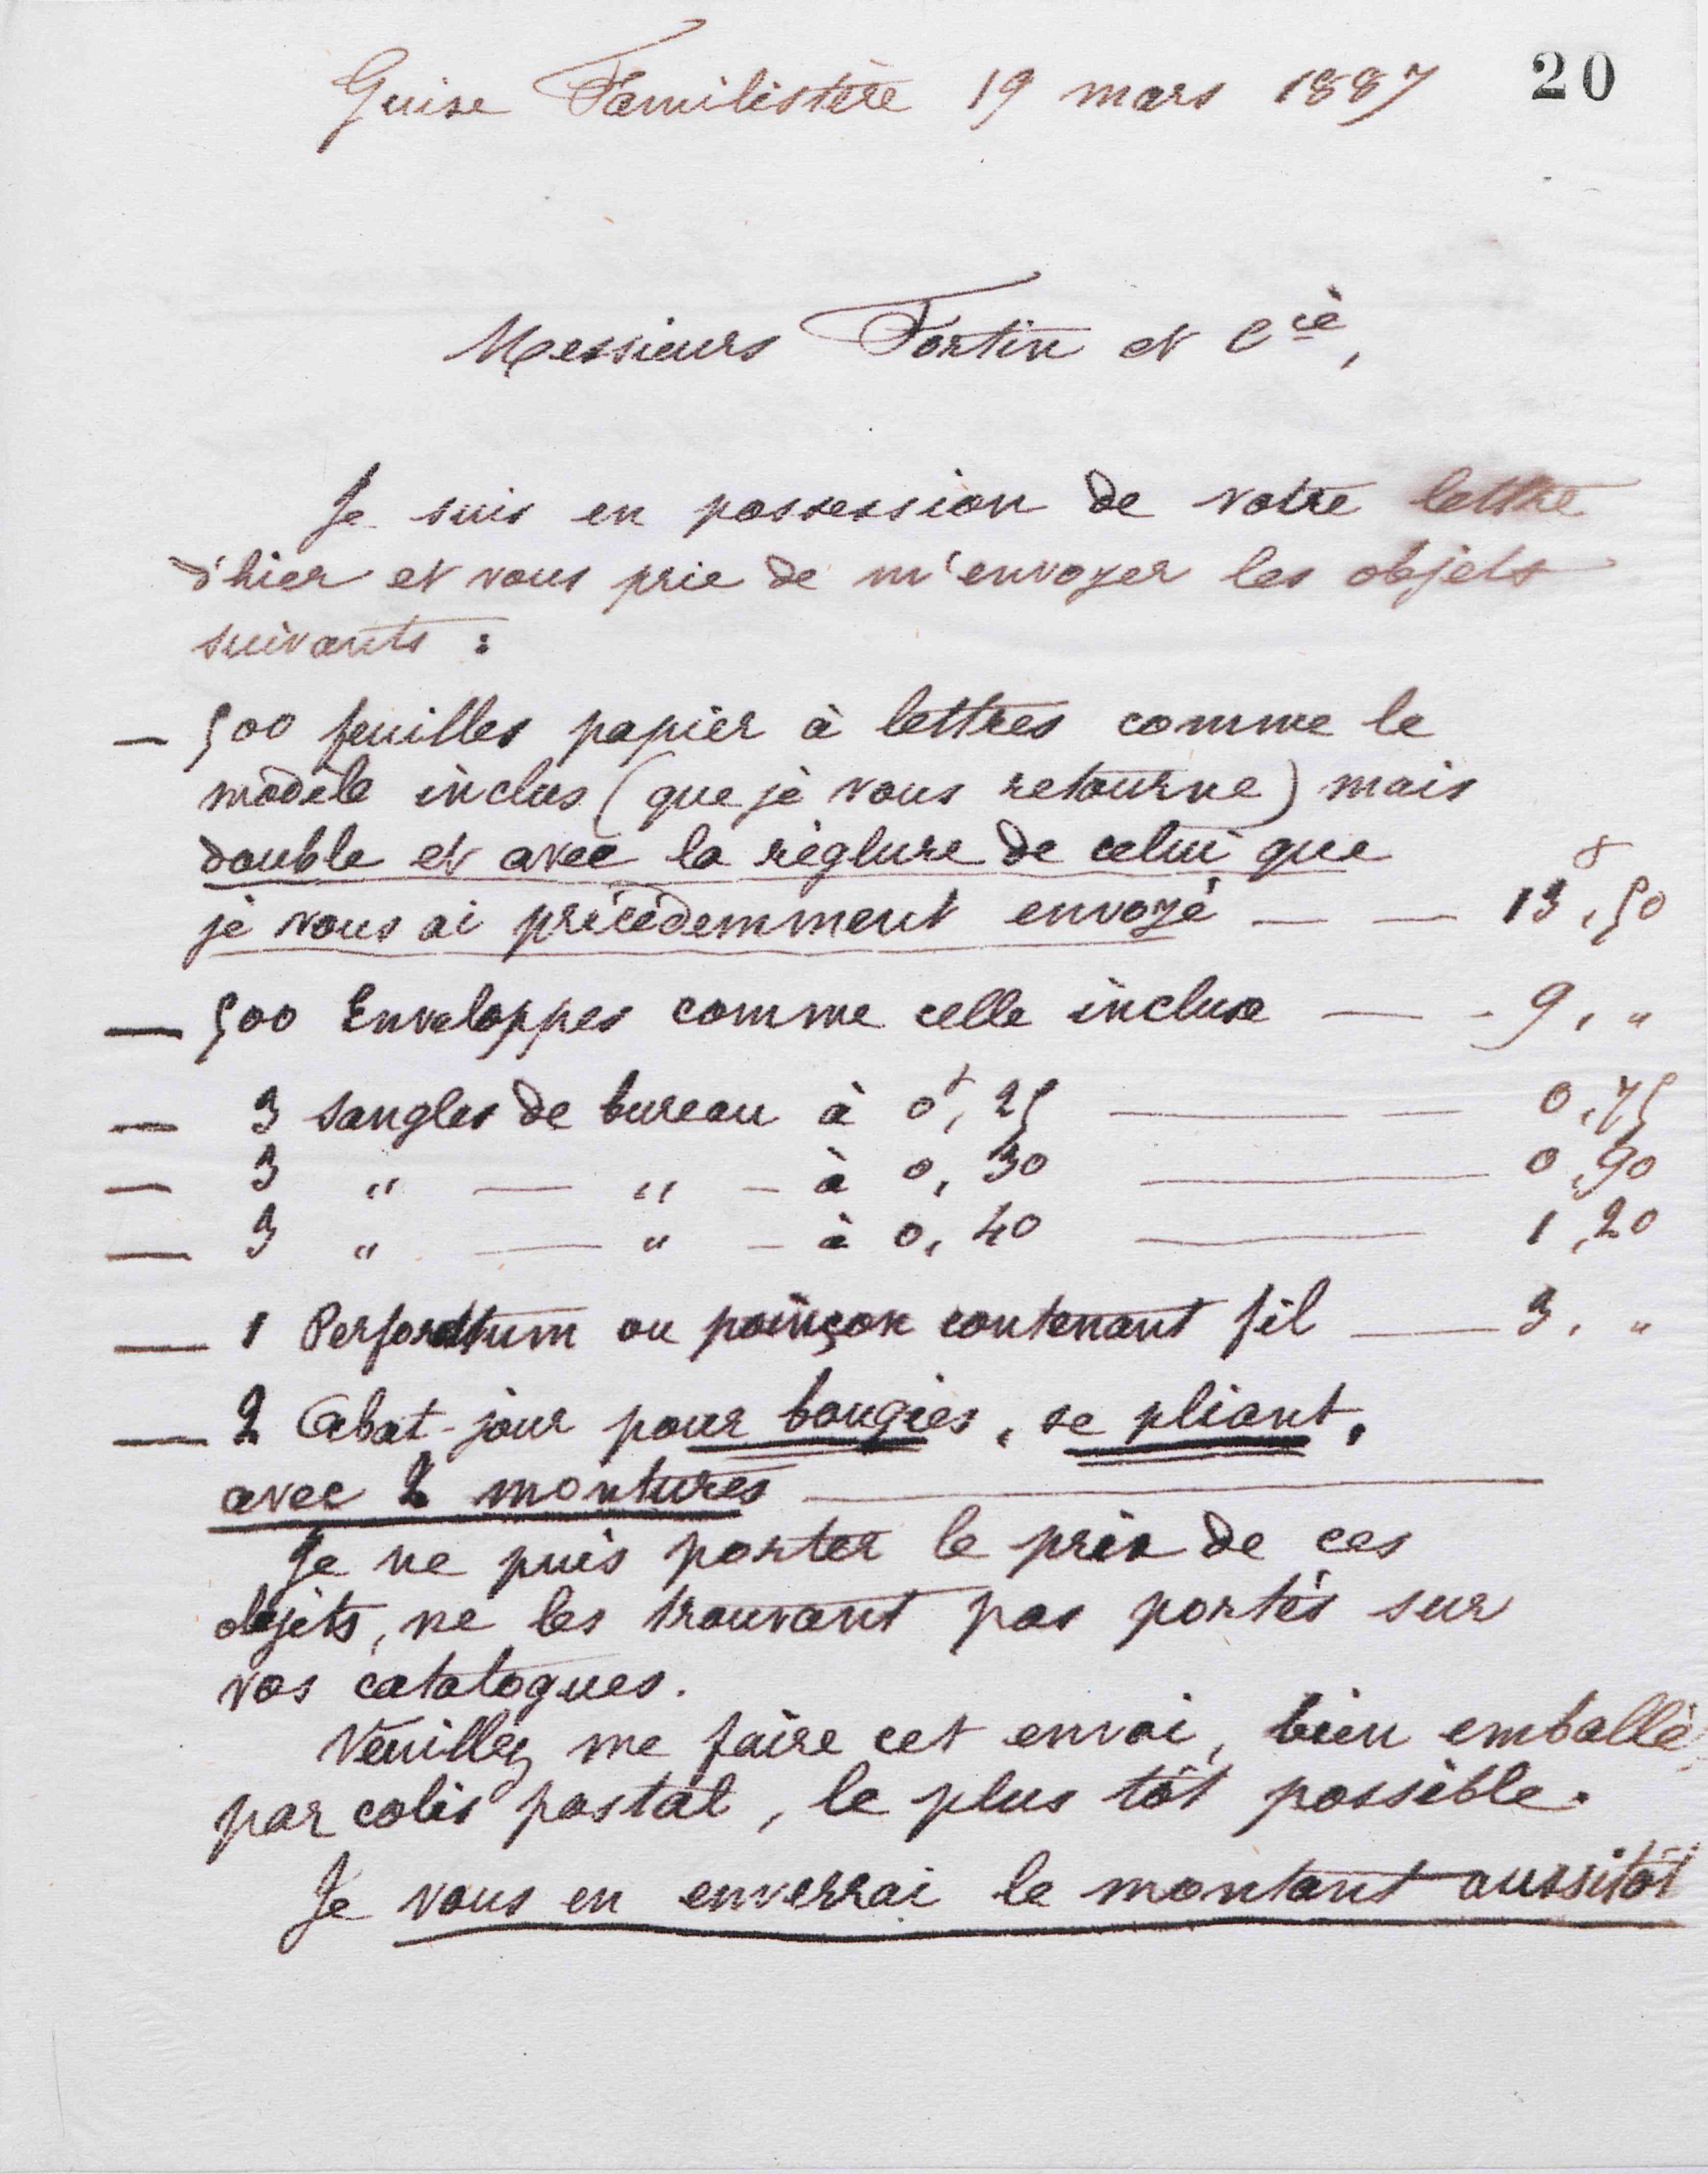 Guise Familistère 19 mars 1887
20
Messieurs Fortin et Cie,
Je suis en possession de votre lettre
d'hier et vous prie de m'envoyer les objets
suivants :
— 500 feuilles papier à lettres comme le
modèle inclus (que je vous retourne) mais
double et avec la réglure de celui que
je vous ai précédemment envoyé — — 13f,50
— 500 Enveloppes comme celle incluse — - 9, "
— 3 sangles de bureau à 0f,25 — — 0,75
— 3 " — " — à 0,30 — 0,90
— 3 " — " — à 0,40 — 1,20
— 1 Perforatum ou poinçon contenant fil — 3, "
— 2 Abat-jour pour bougies, se pliant,
avec 2 montures —
Je ne puis porter le prix de ces
objets, ne les trouvant pas portés sur
vos catalogues.
Veuillez me faire cet envoi, bien emballé,
par colis postal, le plus tôt possible.
Je vous en enverrai le montant aussitôt